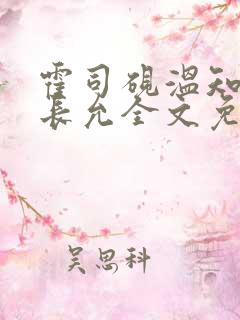 霍司砚温知
长允全文免
吴思科